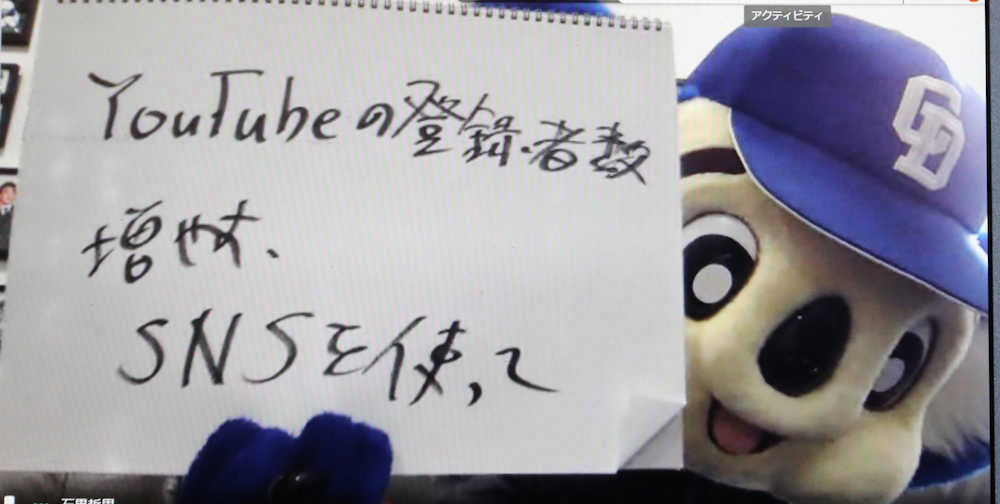 アクティビティ
YouTubeの登録者数
増やす、
SNSを使って
CD